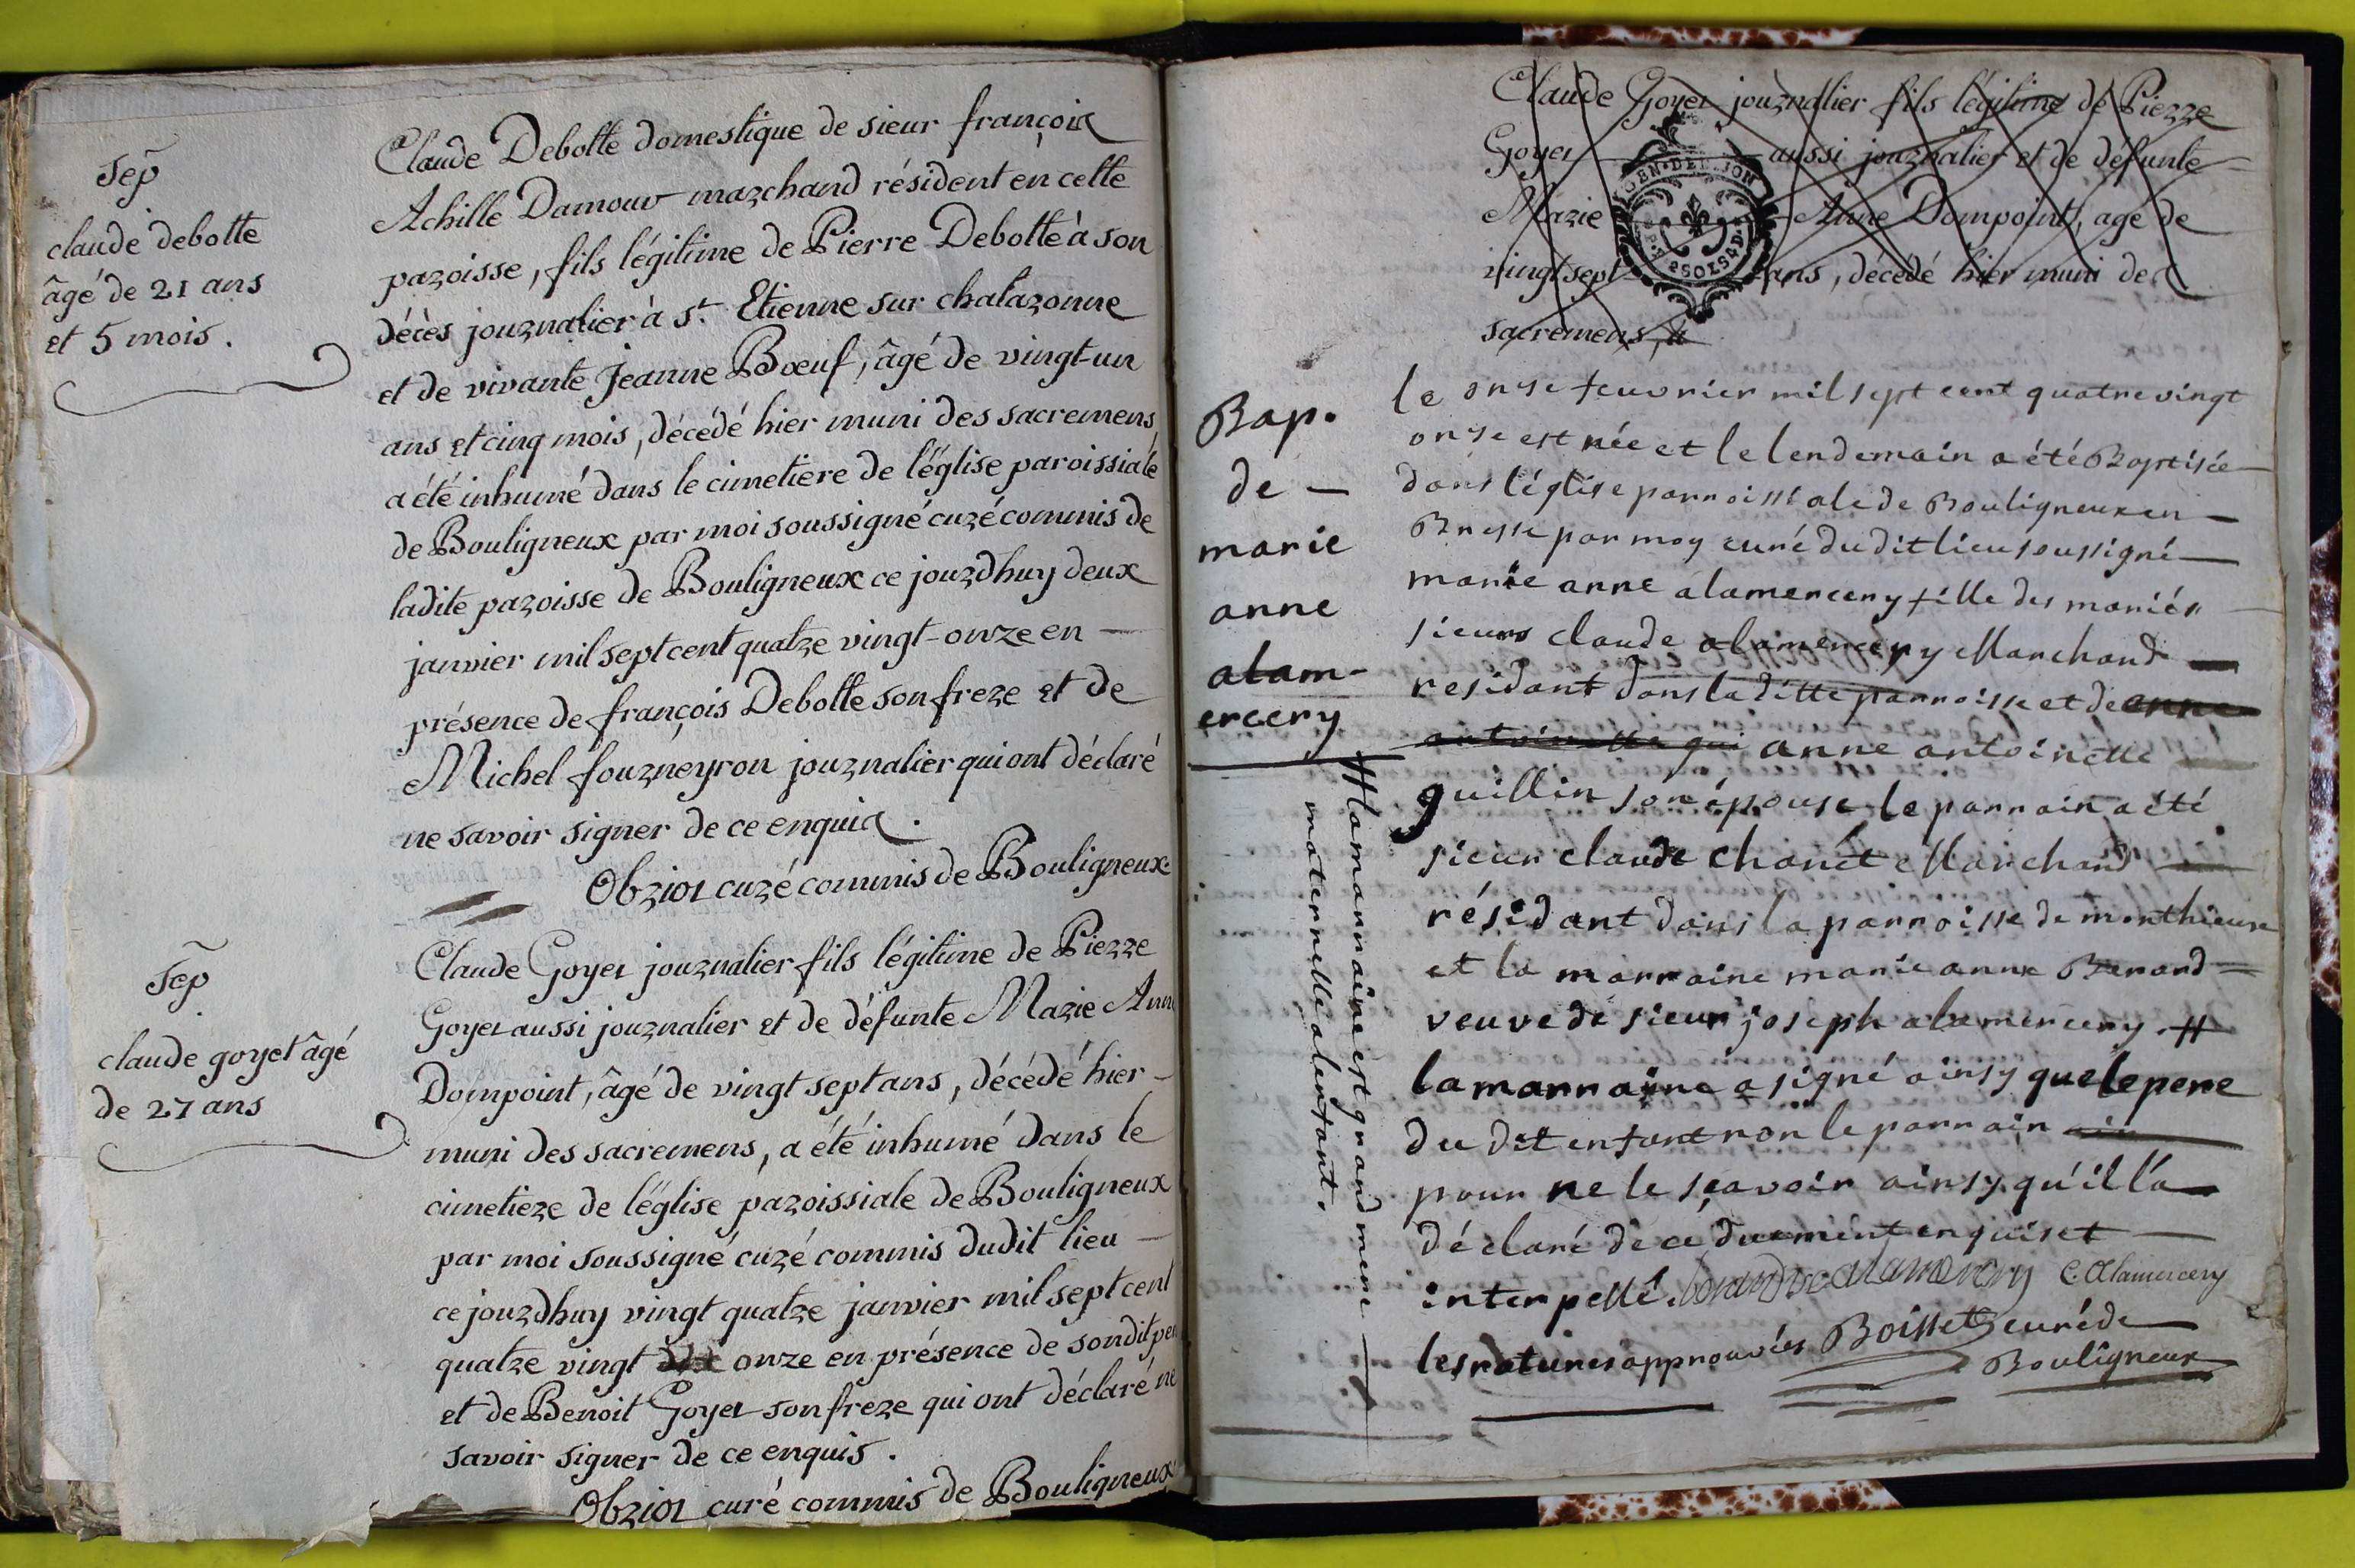 Sep
claude debotte
âgé de 21 ans
et 5 mois.
Claude Debotte domestique de sieur françois
Achille Damour marchand résident en cette
paroisse, fils légitime de Pierre Debotte à son
décès journalier à St. Etienne sur chalaronne
et de vivante Jeanne Bœuf, âgé de vingt-un
ans et cinq mois, décédé hier muni des sacremens
a été inhumé dans le cimetiere de l'église paroissiale
de Bouligneux par moi soussigné curé commis de
ladite paroisse de Bouligneux ce jourdhuy deux
janvier mil sept cent quatre vingt-onze en —
présence de françois Debotte son frere et de
Michel fourneyron journalier qui ont déclaré
ne savoir signer de ce enquis.
Obrier curé commis de Bouligneux
Sep
claude goyet âgé
de 27 ans
Claude Goyet journalier fils légitime de Pierre
Goyet aussi journalier et de défunte Marie Anne
Dompoint, âgé de vingt sept ans, décédé hier —
muni des sacremens, a été inhumé dans le
cimetiere de l'église paroissiale de Bouligneux
par moi soussigné curé commis dudit lieu —
ce jourdhuy vingt quatre janvier mil sept cent
quatre vingt dix onze en présence de sondit per
et de Benoit Goyet son frere qui ont déclaré ne
savoir signer de ce enquis.
Obrier curé commis de Bouligneux
Claude Goyet journalier fils légitime de Pierre
Goyet — aussi journalier et de défunte —
Marie — Anne Dompoint, age de
vingt sept ans, décédé hier muni des
sacremens, a
GEN. DE DIJON
2.SOLS.4.D
Bap.
de —
marie
anne
alam-
ercery
le onse feuvrier mil sept cent quatre vingt
onse est née et le lendemain a été Baptisée —
dans l'église parroissiale de Bouligneux en —
Bresse par moy curé du dit lieu soussigné —
marie anne alamercery fille des mariés —
sieurs claude alamercery Marchand —
residant dans la ditte parroisse et de anne
antoinette qui anne antoinette
guillin son épouse le parrain a été
sieur claude chanét Marchand —
résidant dans la parroisse de monthieux
et la marraine marie anne Berard =
veuve de sieur joseph alamercery. #
la marraine a signé ainsy que le pere
du dit enfant non le parrain ain
pour ne le sçavoir ainsy qu'il l'a
déclaré de ce duement enquis et —
interpellé. Berard ve alamercery C. Alamercery
les ratures approuvées Boisset curé de
Bouligneux
# la marraine est grand mere
maternelle a lenfant.